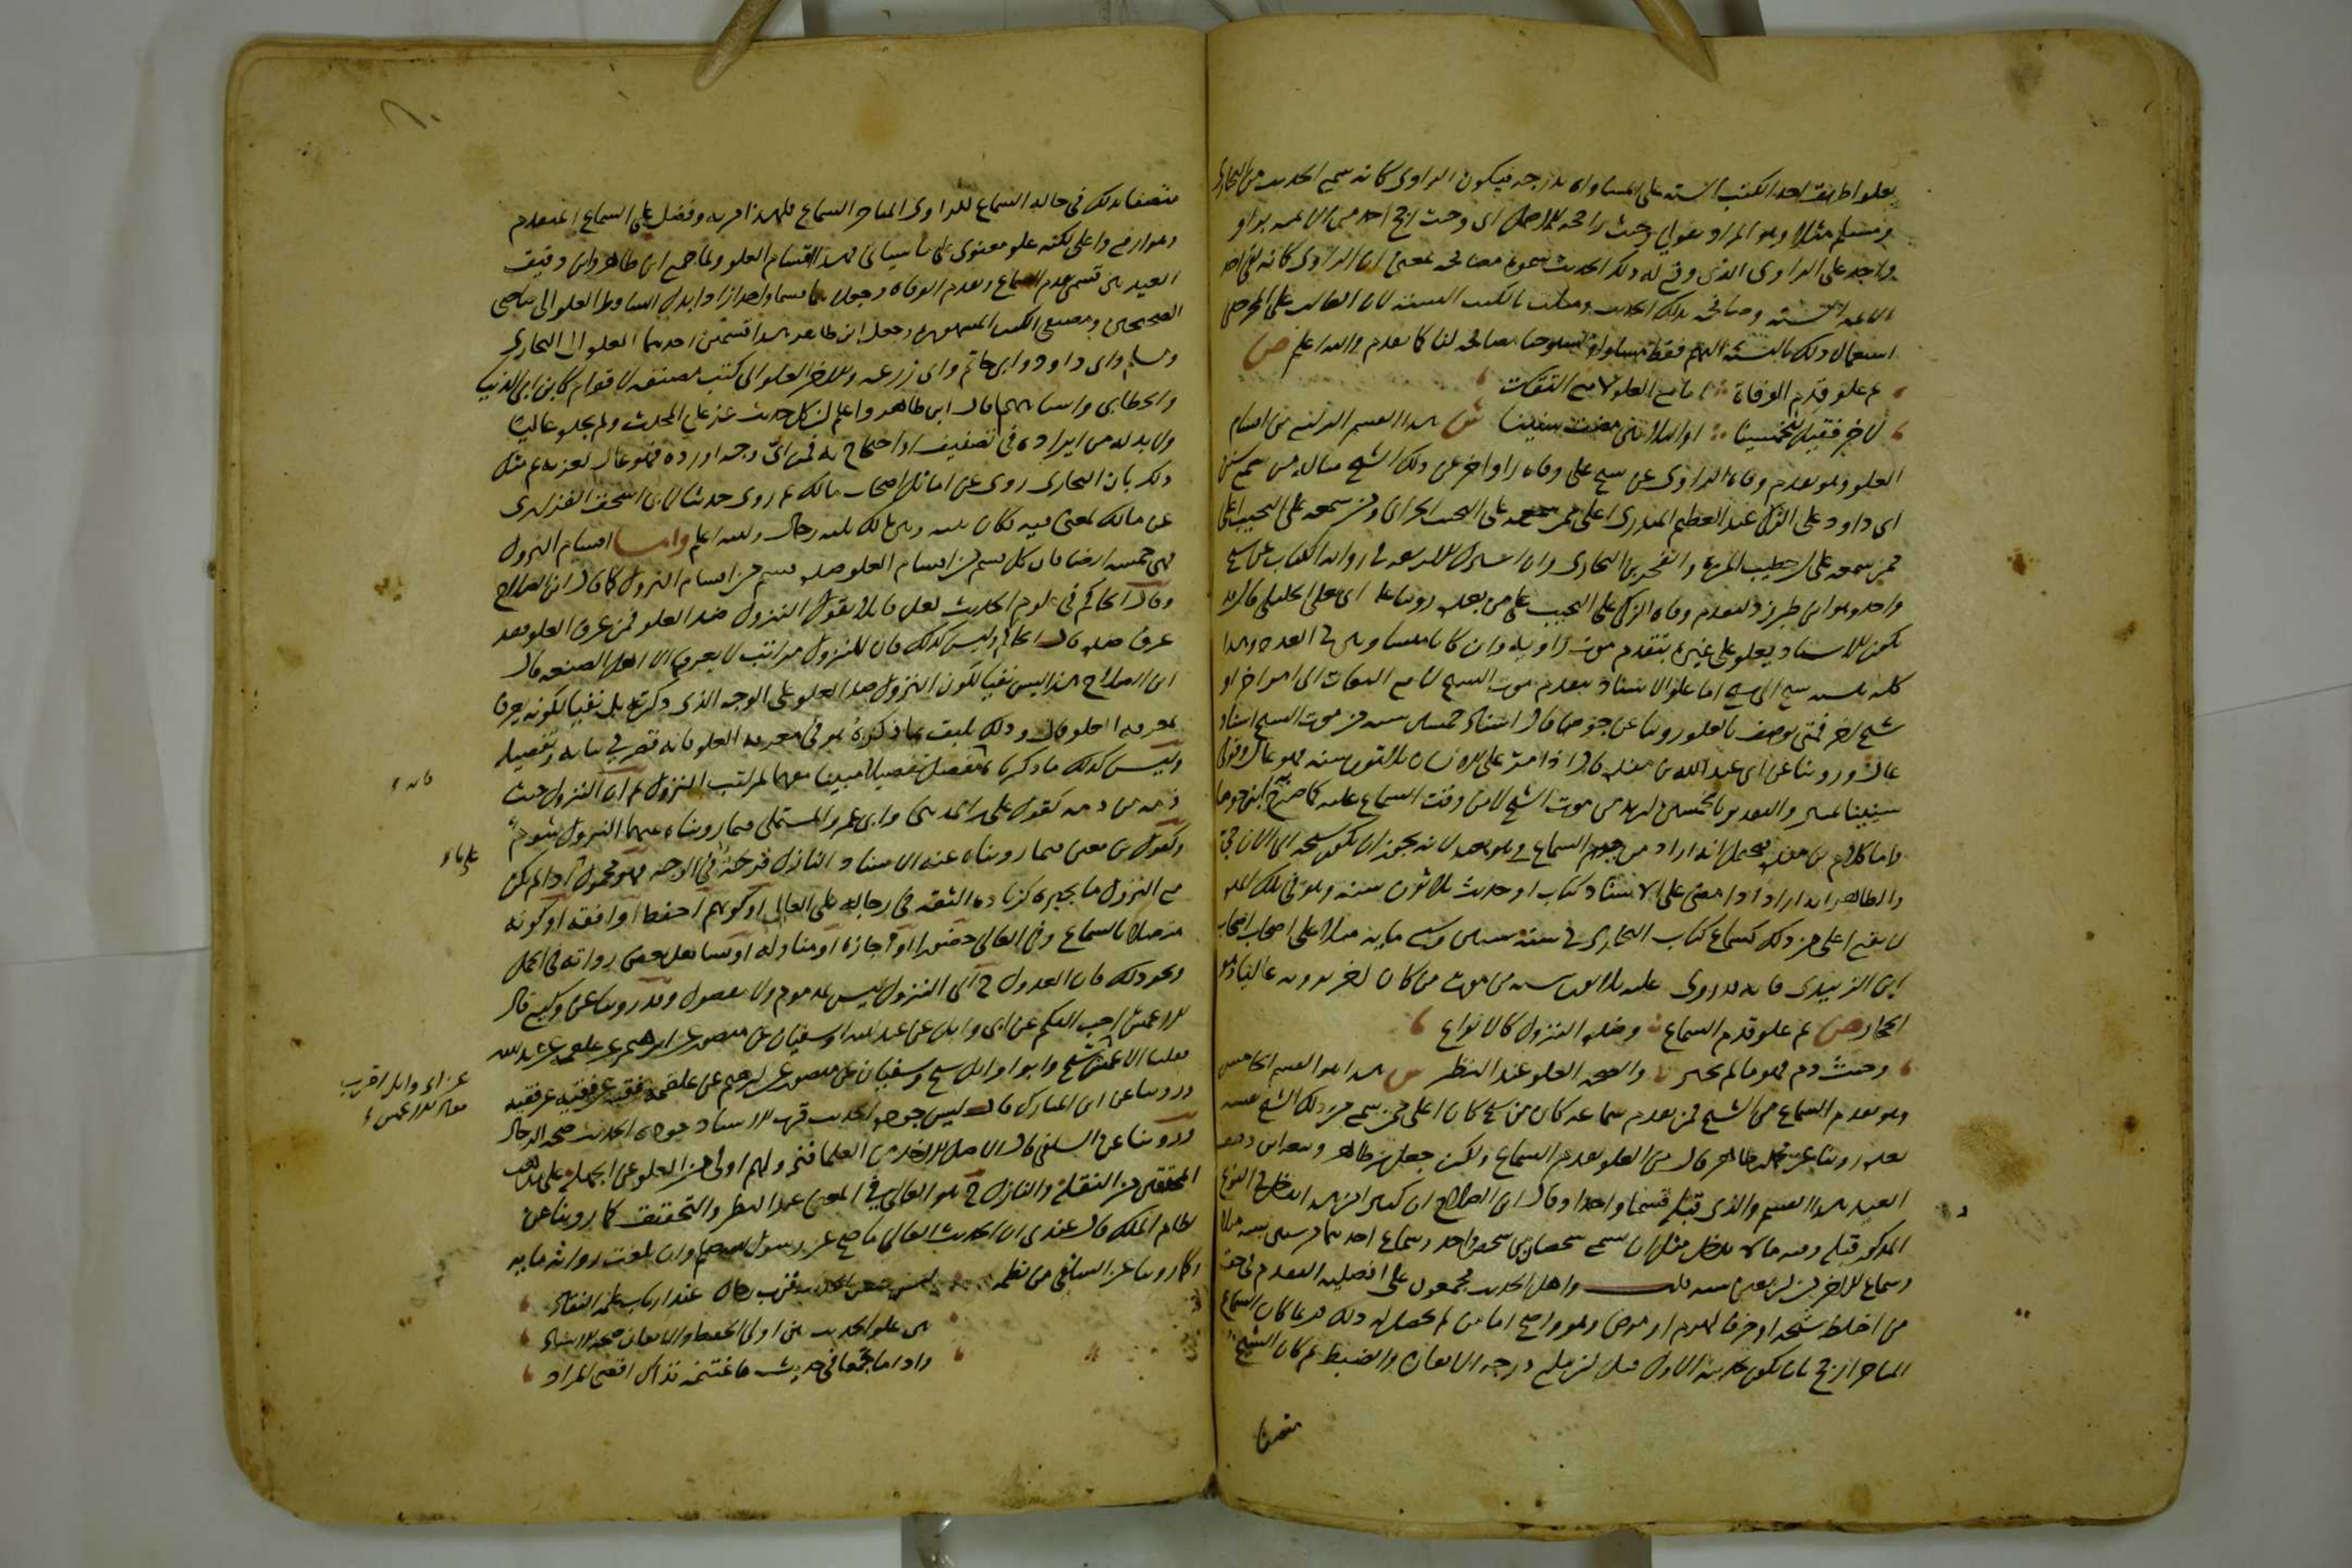 يعلو طريق احد الكتب الستة على المساواة بدرجة فيكون الراوي كانه سمع الحديث من البخاري
ومسلم مثلا وهو المراد بقولي وحيث راجحه الاصل اي وحيث رجح احد من الائمة براو
واحد على الراوي الذي وقع له ذلك الحديث سموه مصافحة بمعنى ان الراوي كانه لقي احد
الائمة الستة وصافحه بذلك الحديث ومثلت بالكتب الستة لان الغالب على المخرجين
استعمال ذلك بالنسبة اليهم فقط والله اعلم ص
ثم علو قدم الوفاة اما العلو لا مع التفات
لاخر فقيل للخمسينا او الثلاثين مضت سنينا ش هذا القسم الرابع من اقسام
العلو وهو تقدم وفاة الراوي عن شيخ على وفاة راو اخر عن ذلك الشيخ مثاله من سمع سنن
ابي داود على الزكي عبد العظيم المنذري اعلى ممن سمعه على النجيب الحراني ومن سمعه على النجيب اعلى
ممن سمعه على ابن خطيب المزة والفخر بن البخاري وان اشترك الاربعة في رواية الكتاب عن شيخ
واحد وهو ابن طبرزد لتقدم وفاة الزكي على النجيب على من بعده روينا عن ابي يعلى الخليلي قال قد
يكون الاسناد يعلو على غيره بتقدم موت راويه وان كانا متساويين في العدد وهذا
كله بنسبة شيخ الى شيخ اما علو الاسناد بتقدم موت الشيخ لا مع التفات الى امر اخر او
شيخ اخر فمتى يوصف بالعلو روينا عن ابن جوصا قال اسناد خمسين سنة من موت الشيخ اسناد
علو وروينا عن ابي عبد الله بن منده قال اذا مر على الاسناد ثلاثون سنة فهو عال وقولي
سنينا تمييز والتقدير بالخمسين اريد من موت الشيخ لا من وقت السماع عليه كما صرح به ابن جوصا
واما كلام ابن منده فيحتمل انه اراد من السماع وهو بعيد لانه يجوز ان يكون شيخه الى الان حي
والظاهر انه اراد اذا مضى على الاسناد كتاب او حديث ثلاثون سنة وهو في تلك المدة
لا يقع اعلى من ذلك كسماع كتاب البخاري في سنة ستين وسبع ماية مثلا على اصحاب اصحاب
ابن الزبيدي فانه مضت عليه ثلاثون سنة من موت من كان اخر من يرويه عاليا وهو
الحجار ص ثم علو قدم السماع وضده النزول كالانواع
وحيث ذم فهو ما لم يجبر والصحة العلو عند النظر ش هذا هو القسم الخامس
وهو تقدم السماع من الشيخ فمن تقدم سماعه كان من شيخ كان اعلى ممن سمع من ذلك الشيخ نفسه
بعده روينا عن محمد بن طاهر قال من العلو تقدم السماع ولكن جعل ابن طاهر وتبعه ابن دقيق
العيد هذا القسم والذي قبله قسما واحدا وقال ابن الصلاح ان كثيرا من هذا يدخل في النوع
المذكور قبله وفيه ما لا يدخل مثل ان يسمع شخصان من شيخ واحد وسماع احدهما من ستين سنة مثلا
وسماع الاخر من اربعين سنة قلت واهل الحديث مجمعون على افضلية المتقدم في حق
من اختلط شيخه او خرف لهرم او مرض وهو واضح اما من لم يحصل له ذلك فربما كان السماع
المتاخر ارجح بان يكون تحديثه الاول قبل ان يبلغ درجة الاتقان والضبط ثم كان الشيخ
متصفا
متصفا بذلك في حالة السماع للراوي المتاخر السماع فلهذا مزية وفضل على السماع المتقدم
وهو ارفع واعلى لكنه علو معنوي على ما سياتي فهذه اقسام العلو ولما جمع ابن طاهر وابن دقيق
العيد بين قسمي تقدم السماع وتقدم الوفاة وجعلاهما قسما واحدا زادا بدل الساقط العلو الى صاحبي
الصحيحين ومصنفي الكتب المشهورة وجعل ابن طاهر هذا قسمين احدهما العلو الى البخاري
ومسلم وابي داود وابي حاتم وابي زرعة والاخر العلو الى كتب مصنفة لاقوام كابن ابي الدنيا
والخطابي واشباههما قال ابن طاهر واعلم ان كل حديث عز على المحدث ولم يجده عاليا
ولا بد له من ايراده في تصنيف او احتجاج به فمن اي وجه اورده فهو عال لعزته ثم مثل
ذلك بان البخاري روى عن اماثل اصحاب مالك ثم روى حديثا لابي اسحق الفزاري
عن مالك لمعنى فيه فكان بينه وبين مالك ثلثة رجال والله اعلم واما اقسام النزول
فهي خمسة ايضا فان كل قسم من اقسام العلو ضده قسم من اقسام النزول كما قال ابن الصلاح
وقال الحاكم في علوم الحديث لعل قايلا يقول النزول ضد العلو فمن عرف العلو فقد
عرف ضده قال الحاكم وليس كذلك فان للنزول مراتب لا يعرفها الا اهل الصنعة قال
ابن الصلاح هذا ليس نفيا لكون النزول ضد العلو على الوجه الذي ذكرته بل نفيا لكونه يعرف
بمعرفة العلو قال وذلك يليق بما ذكره هو في معرفة العلو فانه قصر في بيانه وتفصيله
وليس كذلك ما ذكرناه مفصل تفصيلا مبينا مفهما لمراتب النزول ثم ان النزول حيث
ذمه من ذمه كقول علي بن المديني وابي عمرو المستملي فيما رويناه عنهما النزول شوم
وكقول ابن معين فيما رويناه عنه الاسناد النازل قرحة في الوجه فهو محمول اذا لم يكن
مع النزول ما يجبره كزيادة الثقة في رجاله على العالي او كونهم احفظ او افقه او كونه
متصلا بالسماع وفي العالي حضورا او اجازة او مناولة او تساهل بعض رواته في الحمل
ونحو ذلك فان العدول ح الى النزول ليس بمذموم ولا مفضول وقد روينا عن وكيع قال
الاعمش احب اليكم عن ابي وايل عن عبد الله او سفيان عن منصور عن ابرهيم عن علقمة عن عبد الله
فقلنا الاعمش شيخ وابو وايل شيخ وسفيان عن منصور عن ابرهيم عن علقمة فقيه عن فقيه عن فقيه
وروينا عن ابن المبارك قال ليس جودة الحديث قرب الاسناد جودة الحديث صحة الرجال
وروينا عن السلفي قال الاصل الاخذ عن العلما فنزولهم اولى من العلو عن الجهلة على مذهب
المحققين من النقلة والنازل ح هو العالي في المعنى عند النظر والتحقيق كما روينا عن
نظام الملك قال عندي ان الحديث العالي ما صح عن رسول الله صلعم وان بلغت رواته ماية
وكما روينا عن السلفي من نظمه ليس حسن الحديث قرب رجال عند ارباب علمه النقاد
بل علو الحديث بين اولي الحفظ والاتقان صحة الاسناد
واذا ما تجمعا في حديث فاغتنمه فذاك اقصى المراد
عن ابي وايل اقرب
فقال الاعمش